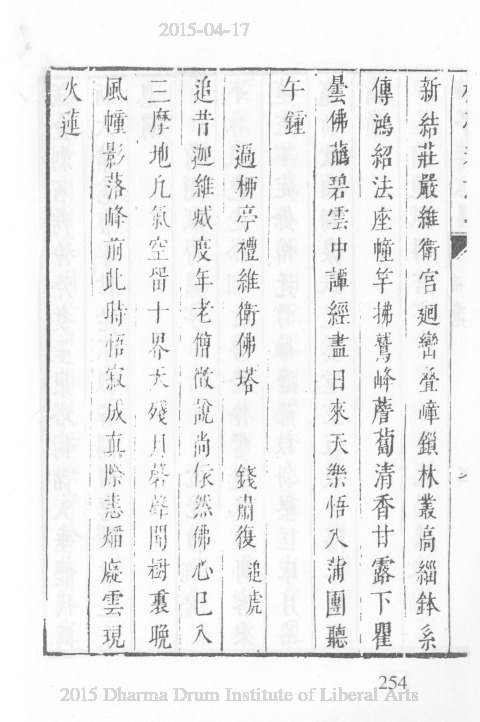 2015-04-17
新結莊嚴維衛宮廻巒叠嶂鎖林叢高緇鉢系
傳鴻紹法座幢竿拂鷲峰薝蔔清香甘露下瞿
曇佛蘤碧雲中譚經盡日來天樂悟入蒲團聽
午鐘
過桺亭禮維衛佛塔 錢肅復 追虎
追昔迦維滅度年老僧微說尚依然佛心已入
三摩地凢氣空留十界天殘月磬聲聞樹裏晚
風幢影落峰前此時悟寂成真際恚燄慶雲現
火蓮
254
2015 Dharma Drum Institute of Liberal Arts